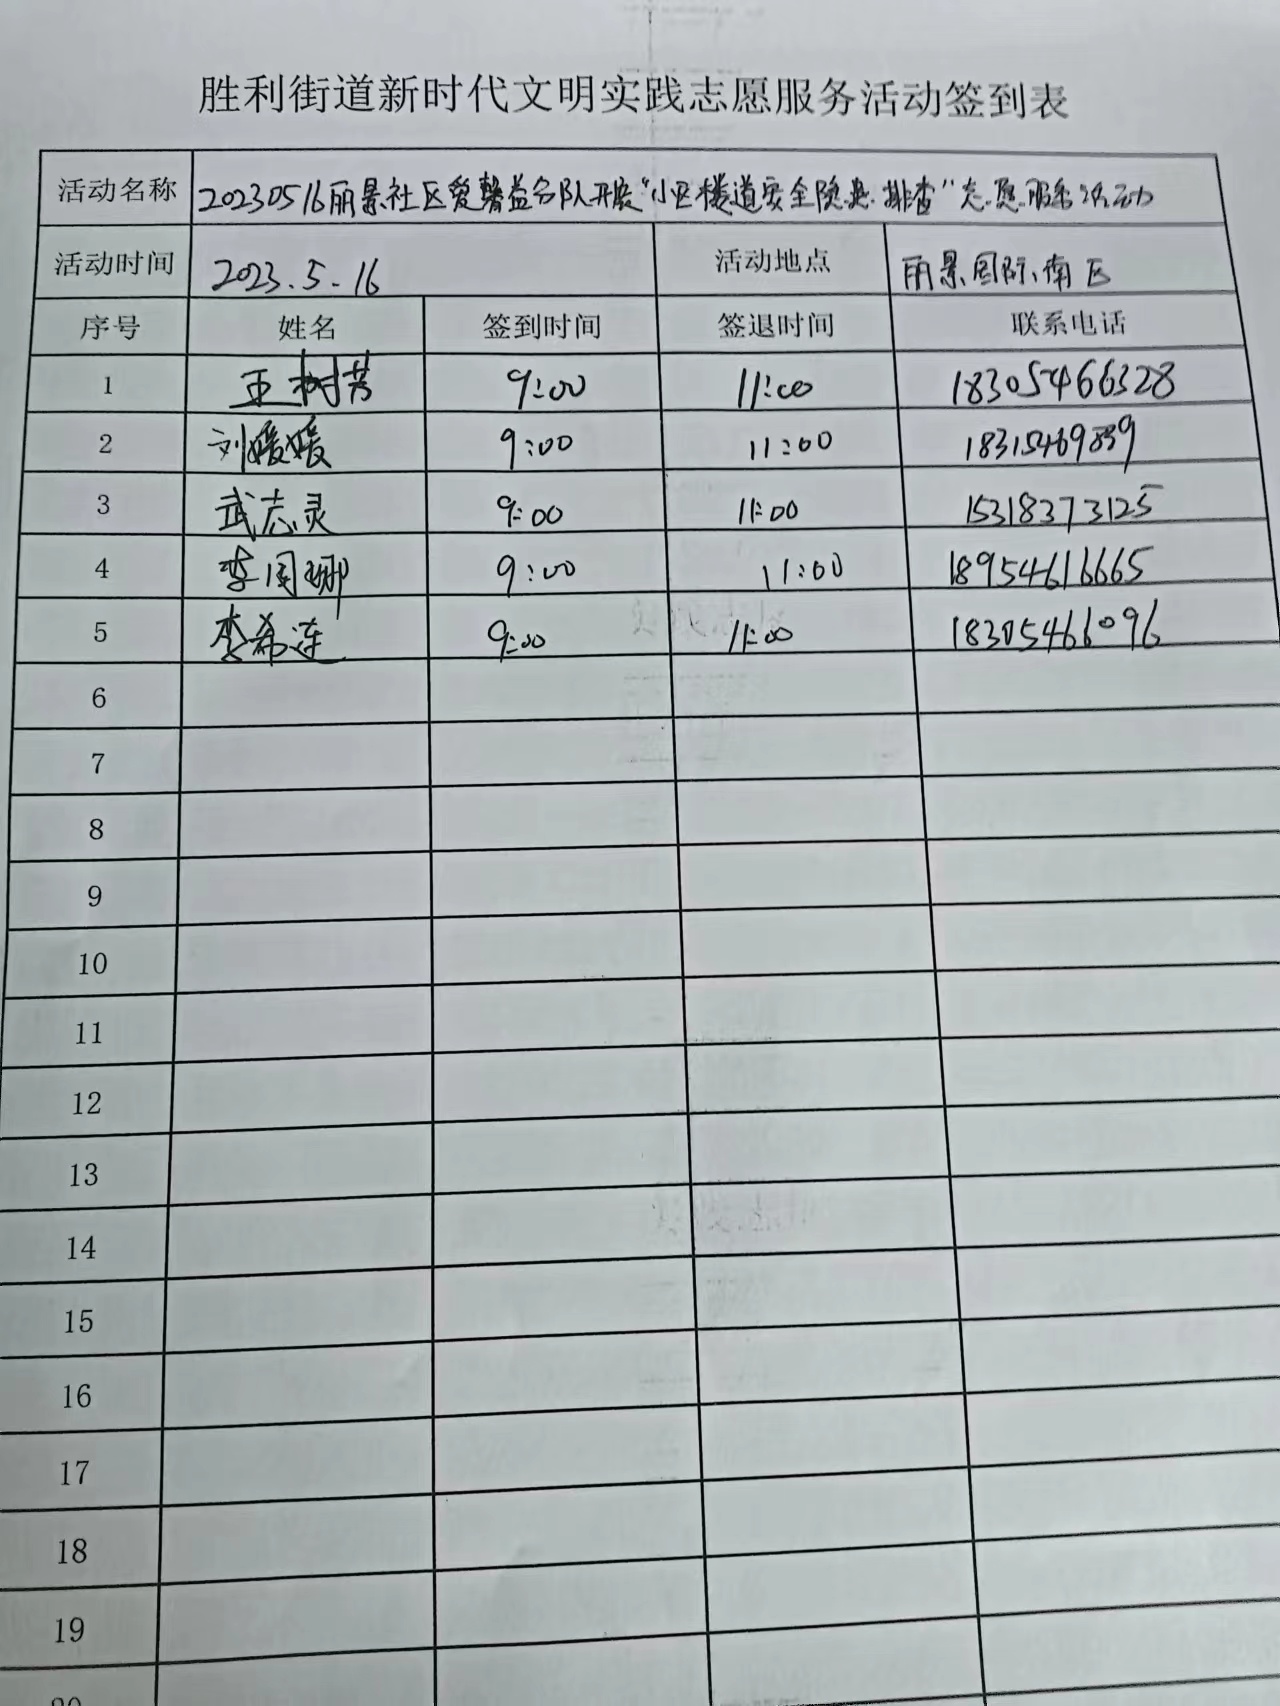 胜利街道新时代文明实践志愿服务活动签到表
活动名称 20230516丽景社区爱馨益分队开展“小区楼道安全隐患排查”志愿服务活动
活动时间 2023.5.16 活动地点 丽景国际南区
序号 姓名 签到时间 签退时间 联系电话
1 王树芳 9:00 11:00 18305466328
2 刘媛媛 9:00 11:00 18315469839
3 武志灵 9:00 11:00 15318373125
4 李国娜 9:00 11:00 18954616665
5 李希连 9:00 11:00 18305466096
6
7
8
9
10
11
12
13
14
15
16
17
18
19
20